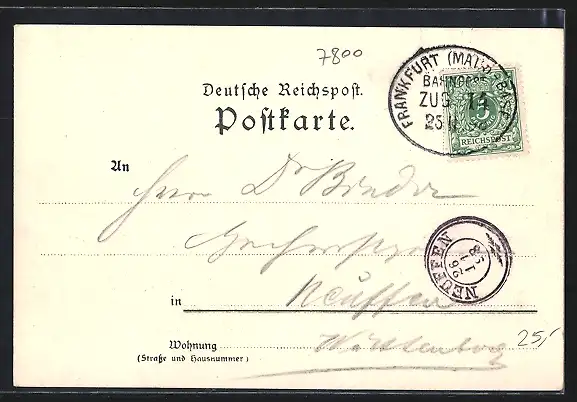 7800
FRANKFURT (MAIN)-BASEL
BAHNPOST
ZUG 14
25
5
REICHSPOST
Deutsche Reichspost.
Postkarte.
An
Herrn Dr Binder
in Neuffen
NEUFFEN
26
1
98
Wohnung
(Straße und Hausnummer)
Württemberg
25,-